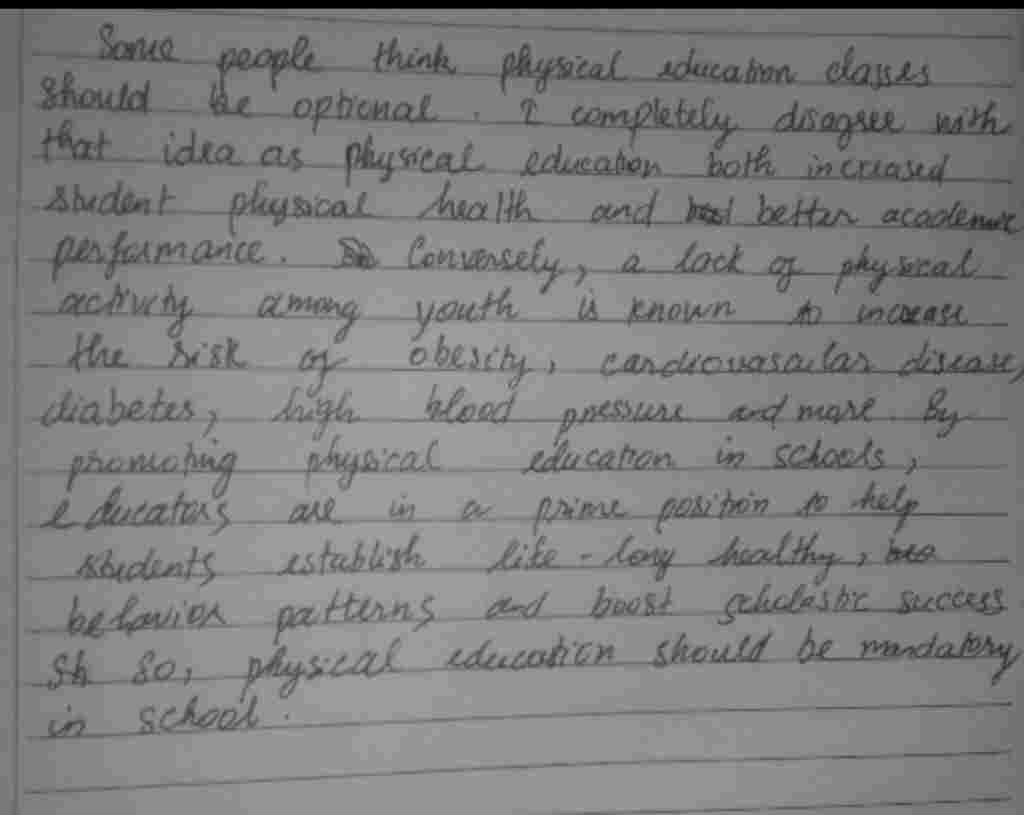 Some people think physical education classes
should be optional. I completely disagree with
that idea as physical education both increased
student physical health and better academic
performance. Conversely, a lack of physical
activity among youth is known to increase
the risk of obesity, cardiovasular disease,
diabetes, high blood pressure and more. By
promoting physical education in schools,
educators are in a prime position to help
students establish life-long healthy,
behavior patterns and boost scholastic success
So, physical education should be mandatory
in school.